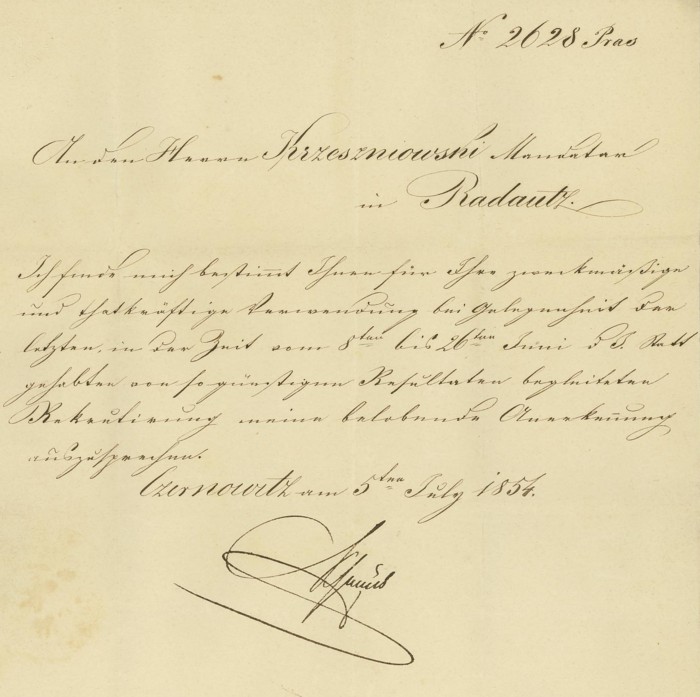 No 2628 Praes
An den Herrn Krzeszniowski Mandatar
in Radautz.
Ich finde mich bestimmt Ihnen für Ihre zweckmäßige
und thatkräftige Verwendung bei Gelegenheit der
letzten, in der Zeit vom 8ten bis 26ten Juni d. J. Statt
gehabten von so günstigen Resultaten begleiteten
Rekrutirung meine belobende Anerkennung
auszusprechen.
Czernowitz am 5ten July 1854.